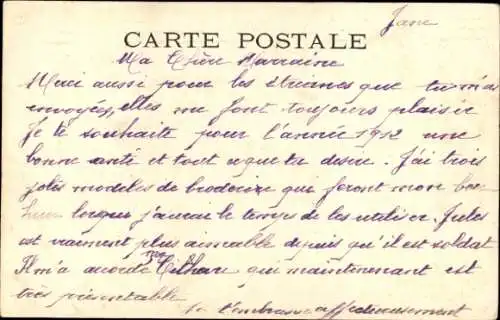 Jane
CARTE POSTALE
Ma Chère Marraine
Merci aussi pour les étrennes que tu m'as
envoyées, elles me font toujours plaisir
Je te souhaite pour l'année 1912 une
bonne santé et tout ce que tu désire. J'ai trois
jolis modèles de broderize qui feront mon bon-
heur lorsque j'aurai le temps de les utiliser. Jules
est vraiment plus aimeable depuis qu'il est soldat
Il m'a accordé qui maintenant est
très présentable
Je t'embrasse affectueusement